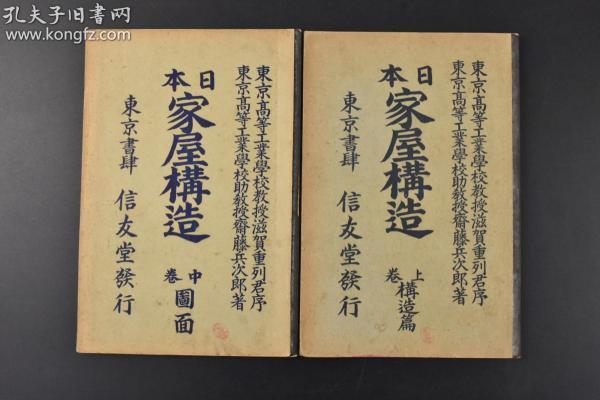 孔夫子旧书网
www.kongfz.com
東京高等工業學校教授滋賀重列君序
東京高等工業學校助教授齋藤兵次郎著
日本
家屋構造
中卷
圖面
東京書肆 信友堂發行
東京高等工業學校教授滋賀重列君序
東京高等工業學校助教授齋藤兵次郎著
日本
家屋構造
上卷
構造篇
東京書肆 信友堂發行